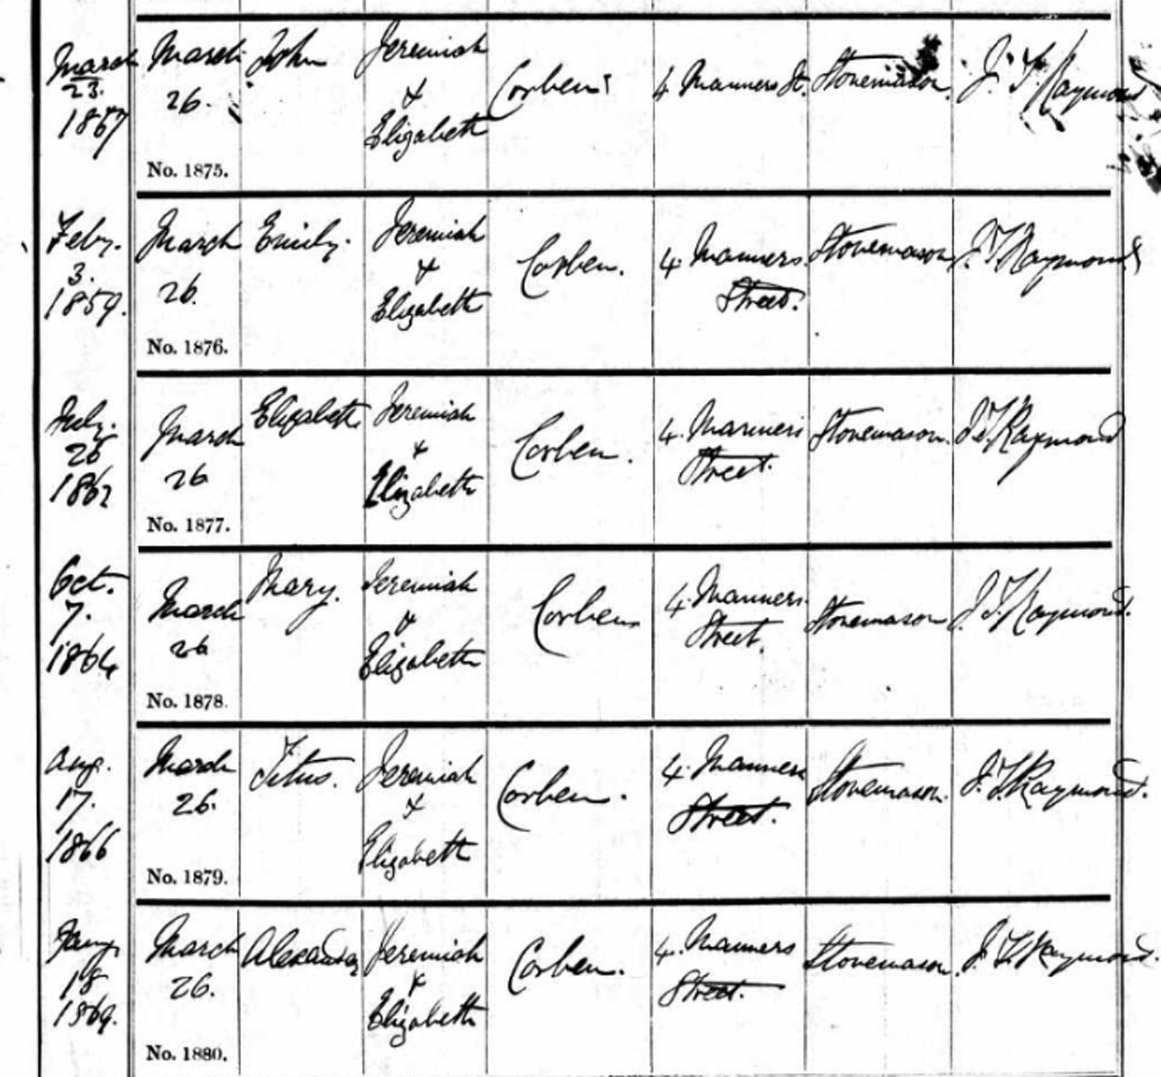 March 23. 1857 March 26. No. 1875. John Jeremiah & Elizabeth Corben 4 Manners St. Stonemason. J. T. Raymond
Feby. 3. 1859. March 26. No. 1876. Emily. Jeremiah & Elizabeth Corben. 4. Manners Street. Stonemason J. T. Raymond
July. 26 1862 March 26 No. 1877. Elizabeth Jeremiah & Elizabeth Corben. 4. Manners Street. Stonemason. J. T. Raymond
Oct. 7. 1864 March 26 No. 1878. Mary. Jeremiah & Elizabeth Corben 4. Manners Street. Stonemason J. T. Raymond.
Aug. 17. 1866 March 26. No. 1879. Titus. Jeremiah & Elizabeth Corben. 4. Manners Street. Stonemason. J. T. Raymond.
Jany. 18 1869. March 26. No. 1880. Alexander Jeremiah & Elizabeth Corben. 4. Manners Street. Stonemason J. T. Raymond.